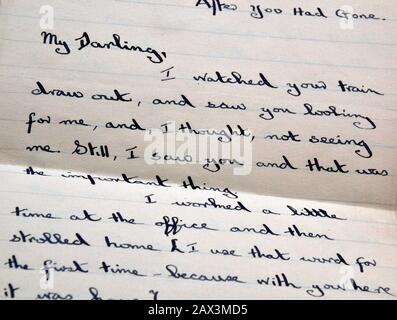 After You Had Gone.
My Darling,
I watched your train
draw out, and saw you looking
for me, and, I thought, not seeing
me. Still, I saw you and that was
the important thing.
I worked a little
time at the office and then
strolled home [I use that word for
the first time - because with you here
it was home]
alamy
Image ID: 2AX3MD5
www.alamy.com